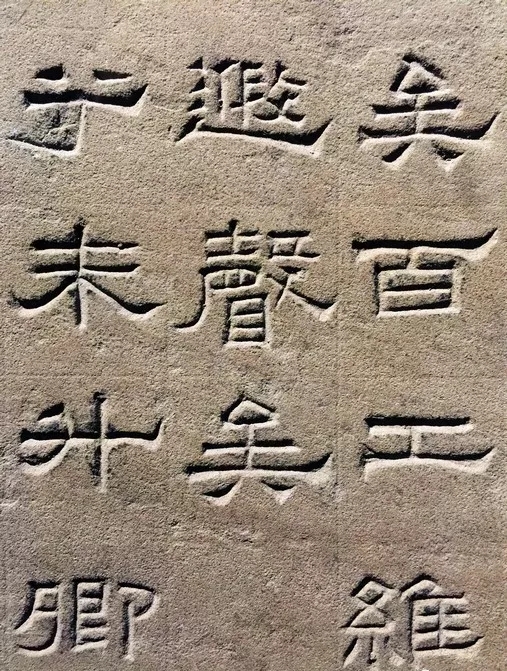 矣百工維
遐聲矣
乎未升卿